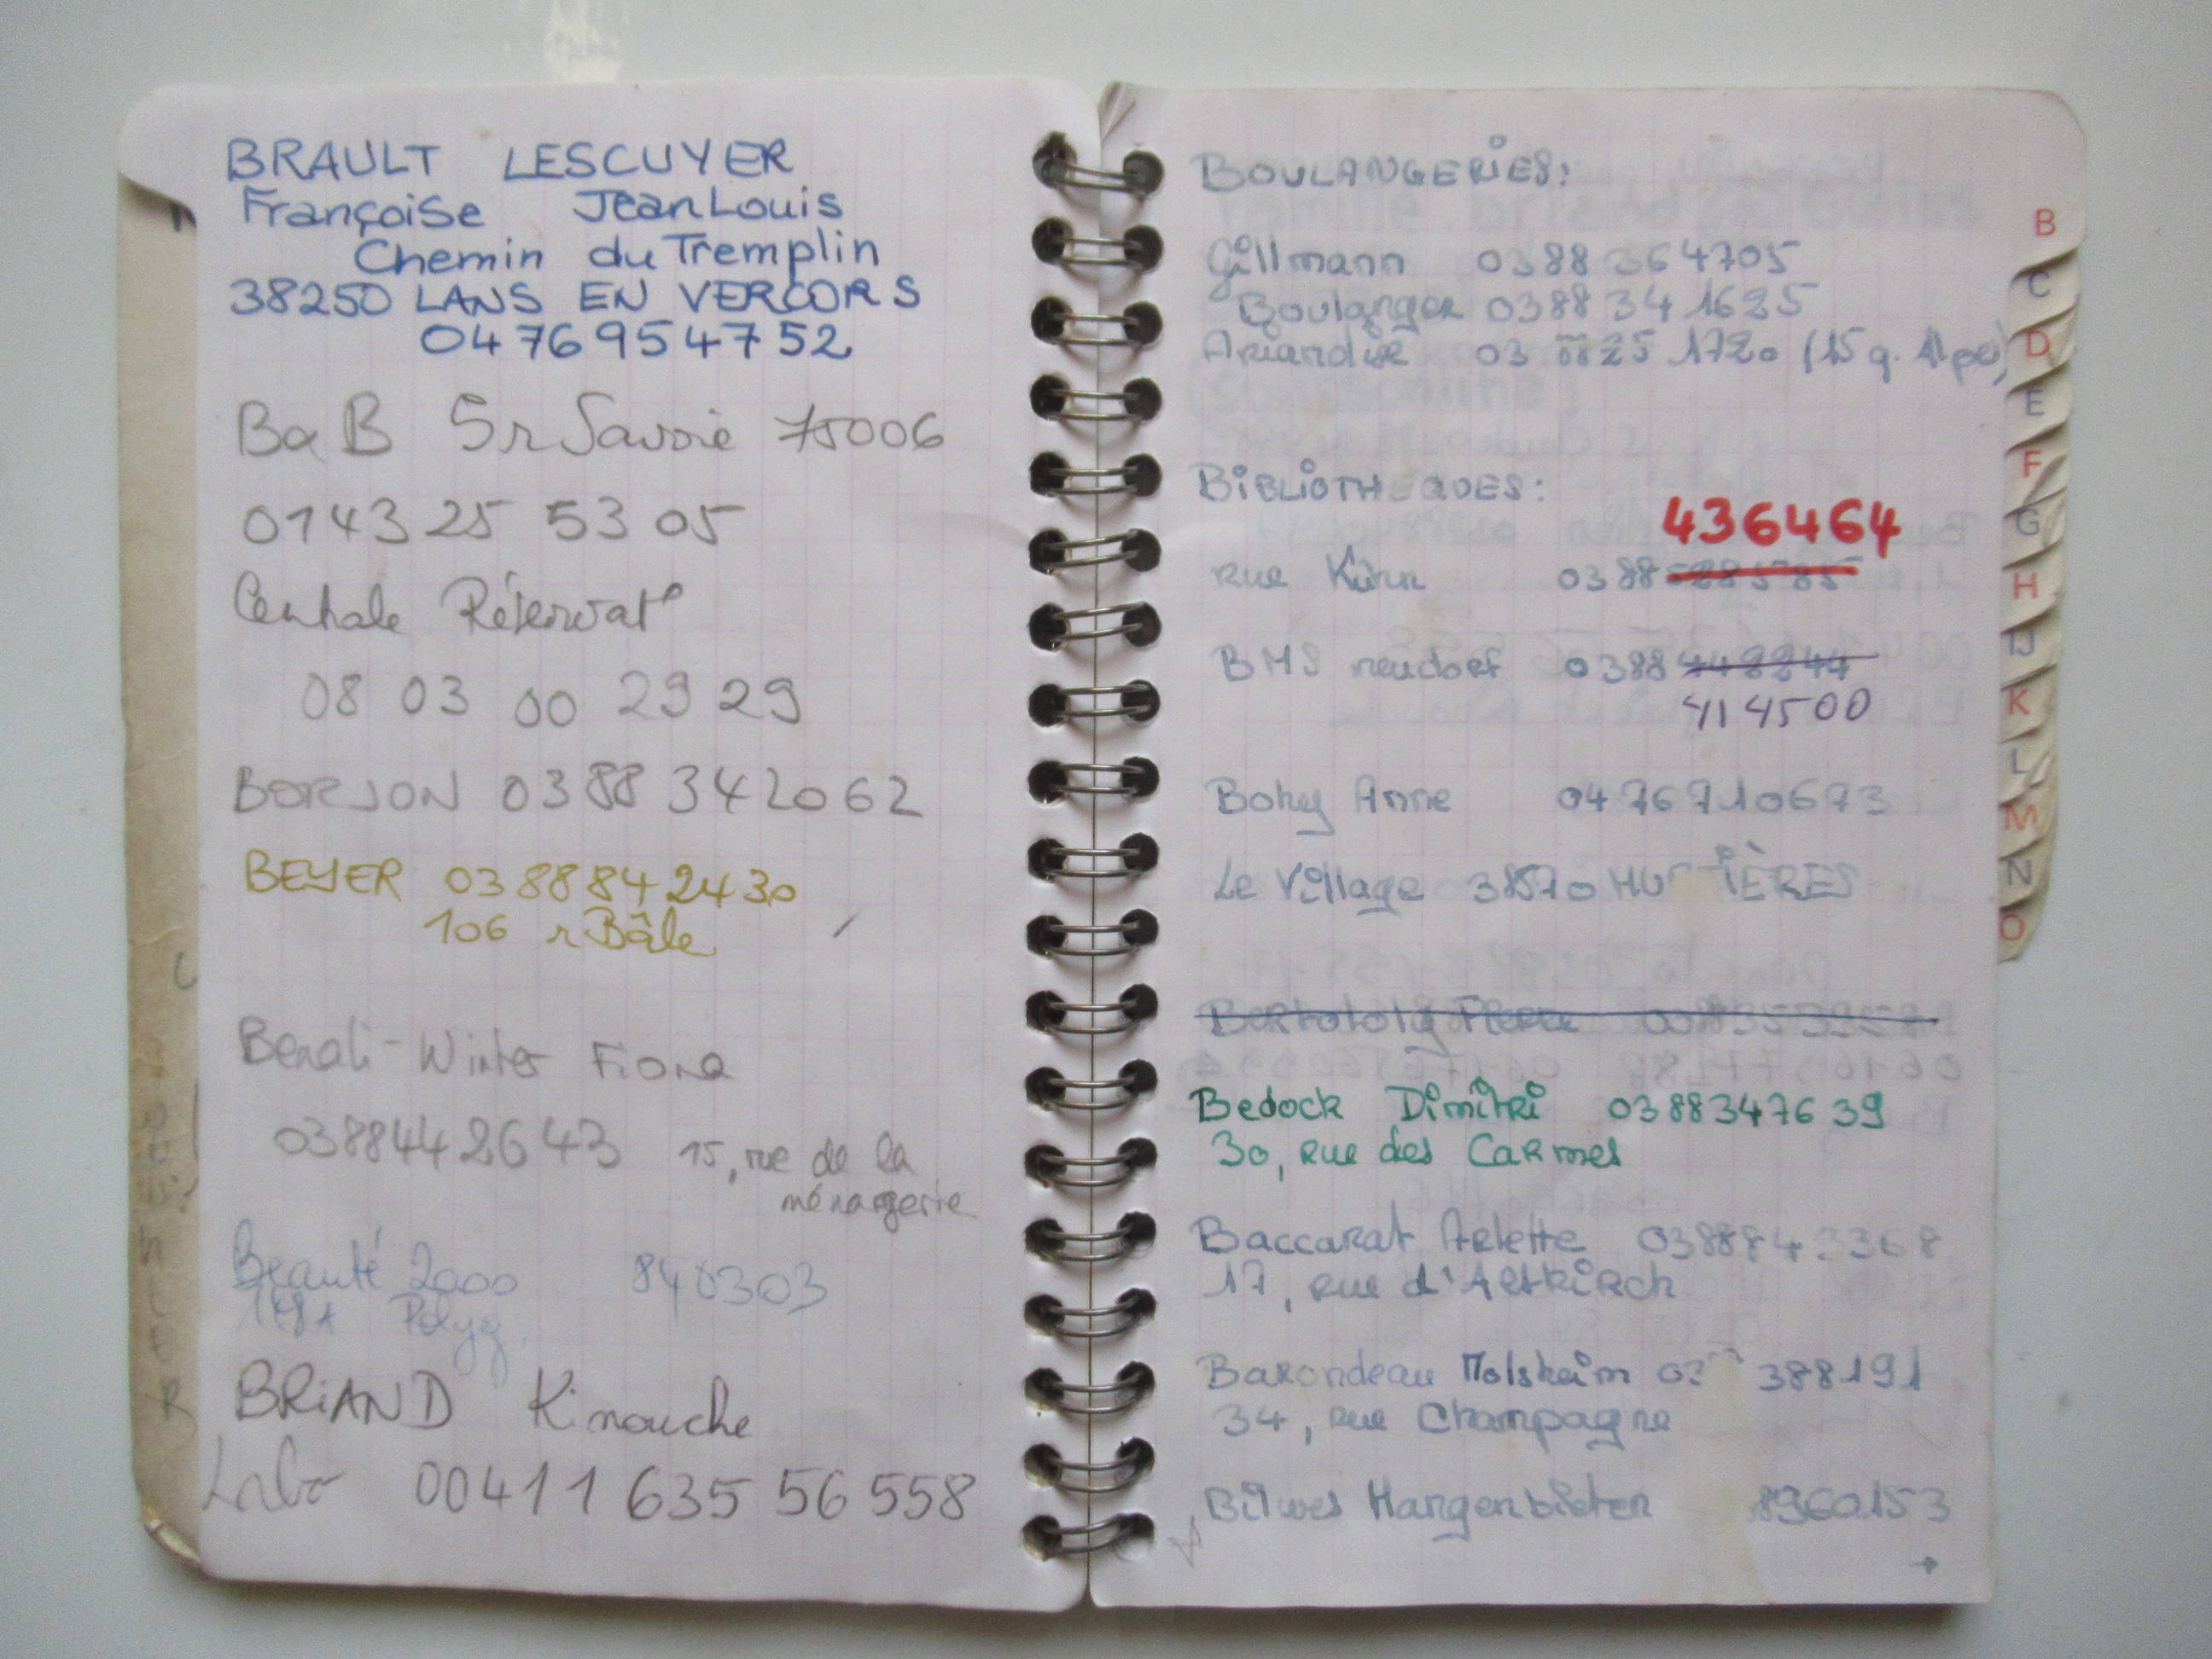 BRAULT LESCUYER
Françoise JeanLouis
Chemin du Tremplin
38250 LANS EN VERCORS
0476954752
BaB 5 r Savoie 75006
0143 25 53 05
Centrale Réservat°
08 03 00 29 29
BORJON 0388 342062
BEYER 0388842430
106 r Bâle
Benali-Winter Fiona
0388442643 15, rue de la
ménagerie
Beauté 2000 840303
148A Polyg.
BRIAND Kinouche
Labo 00411 635 56 558
BOULANGERIES:
Gillmann 0388364705
Boulanger 0388341625
03 8825 1720 (15 q. Alpes)
BIBLIOTHEQUES:
436464
rue Kühn 0388285785
BMS neudorf 0388448244
414500
Bohy Anne 0476710673
Le Village 38570
0388353958
Bedock Dimitri 0388347639
30, rue des Carmes
Baccarat Arlette 0388843368
17, rue d'Altkirch
Barondeau Molsheim 388191
34, rue Champagne
Bilwes Hangenbieten 8960153
→
B
C
D
E
F
G
H
IJ
K
L
M
N
O